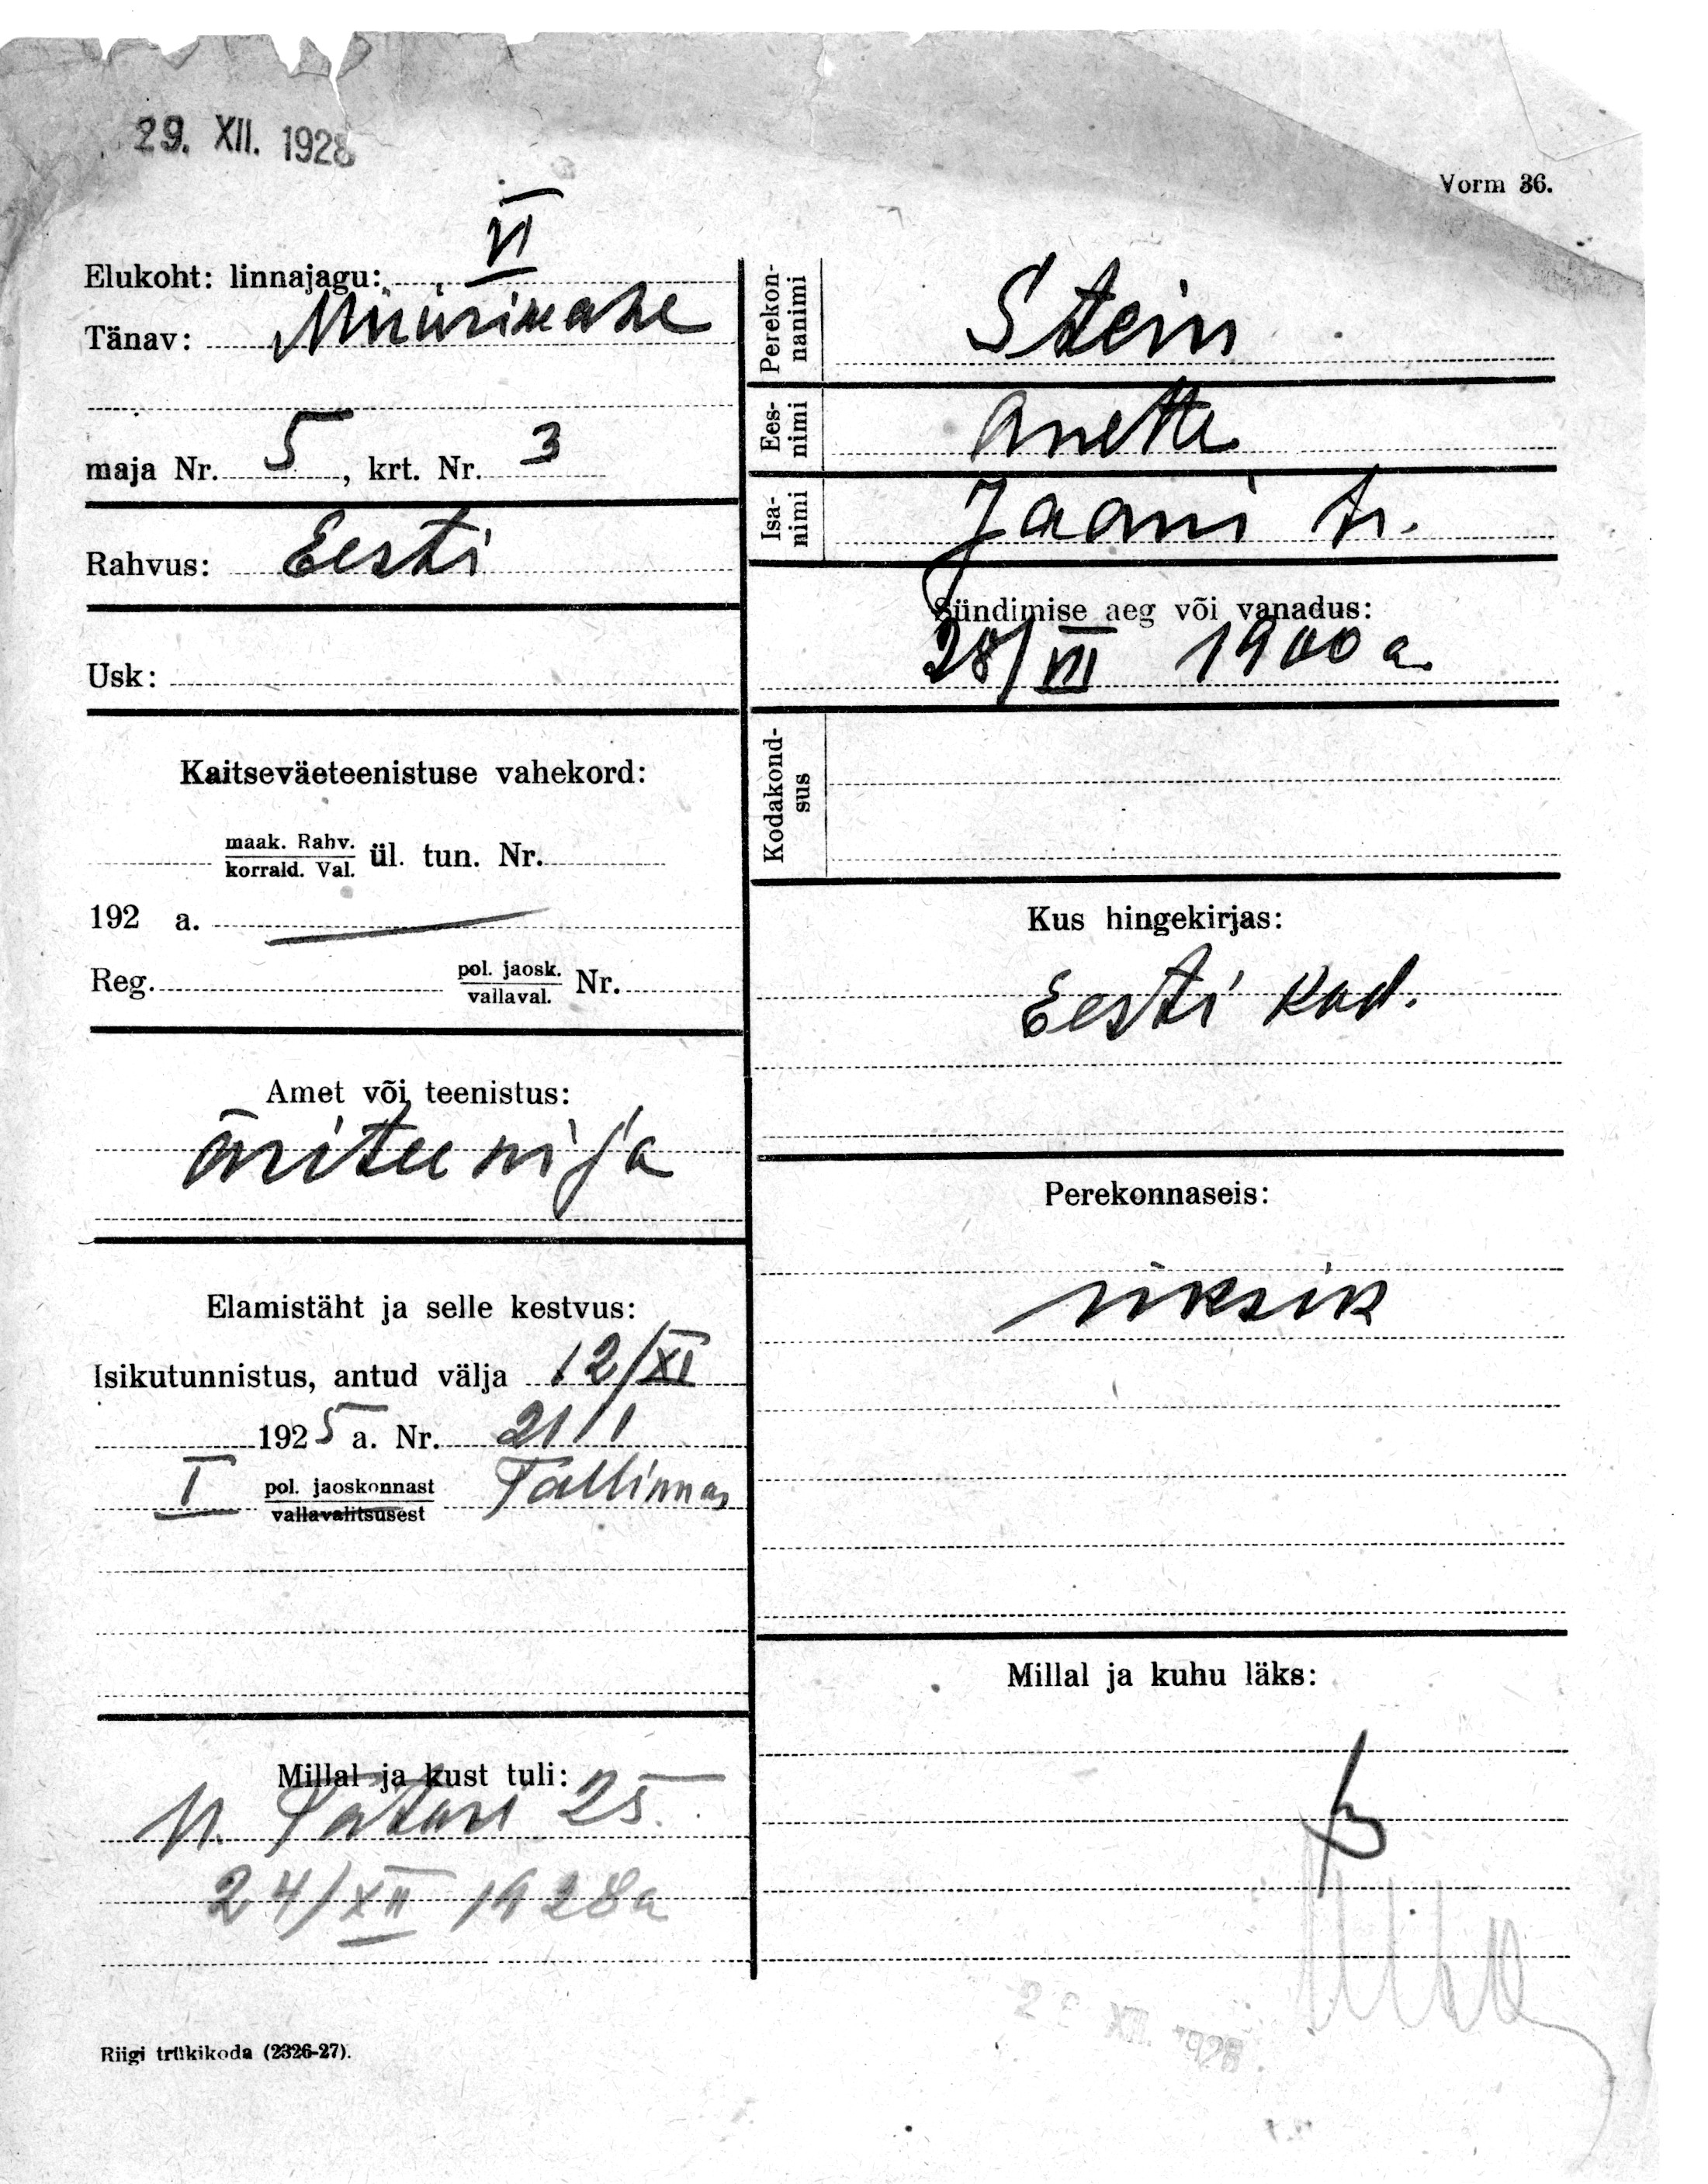 29. XII. 1928
Vorm 36.
Elukoht: linnajagu: VI
Tänav: Müürivahe
maja Nr. 5, krt. Nr. 3
Rahvus: Eesti
Usk:
Kaitseväeteenistuse vahekord:
maak. Rahv.
korrald. Val. ül. tun. Nr.
192 a.
Reg. pol. jaosk.
vallaval. Nr.
Amet või teenistus:
äriteenija
Elamistäht ja selle kestvus:
Isikutunnistus, antud välja 12/XI
1925 a. Nr. 21/1
I pol. jaoskonnast Tallinnas
vallavalitsusest
Millal ja kust tuli:
V. Tatari 25.
24/XII 1928a
Riigi trükikoda (2326-27).
Perekonnanimi Stein
Eesnimi Anette
Isanimi Jaani tr.
Sündimise aeg või vanadus:
28/VII 1900 a.
Kodakondsus
Kus hingekirjas:
Eesti kod.
Perekonnaseis:
üksik
Millal ja kuhu läks: